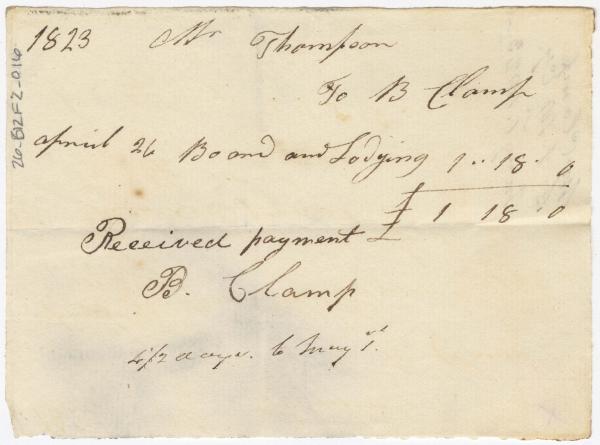 1823 Mr Thompson
To B Clamp
april 26 Board and Lodging 1 .. 18 . 0
£ 1 18 . 0
Received payment
B. Clamp
4/2 days. to May 1st.
26-B12F2-016